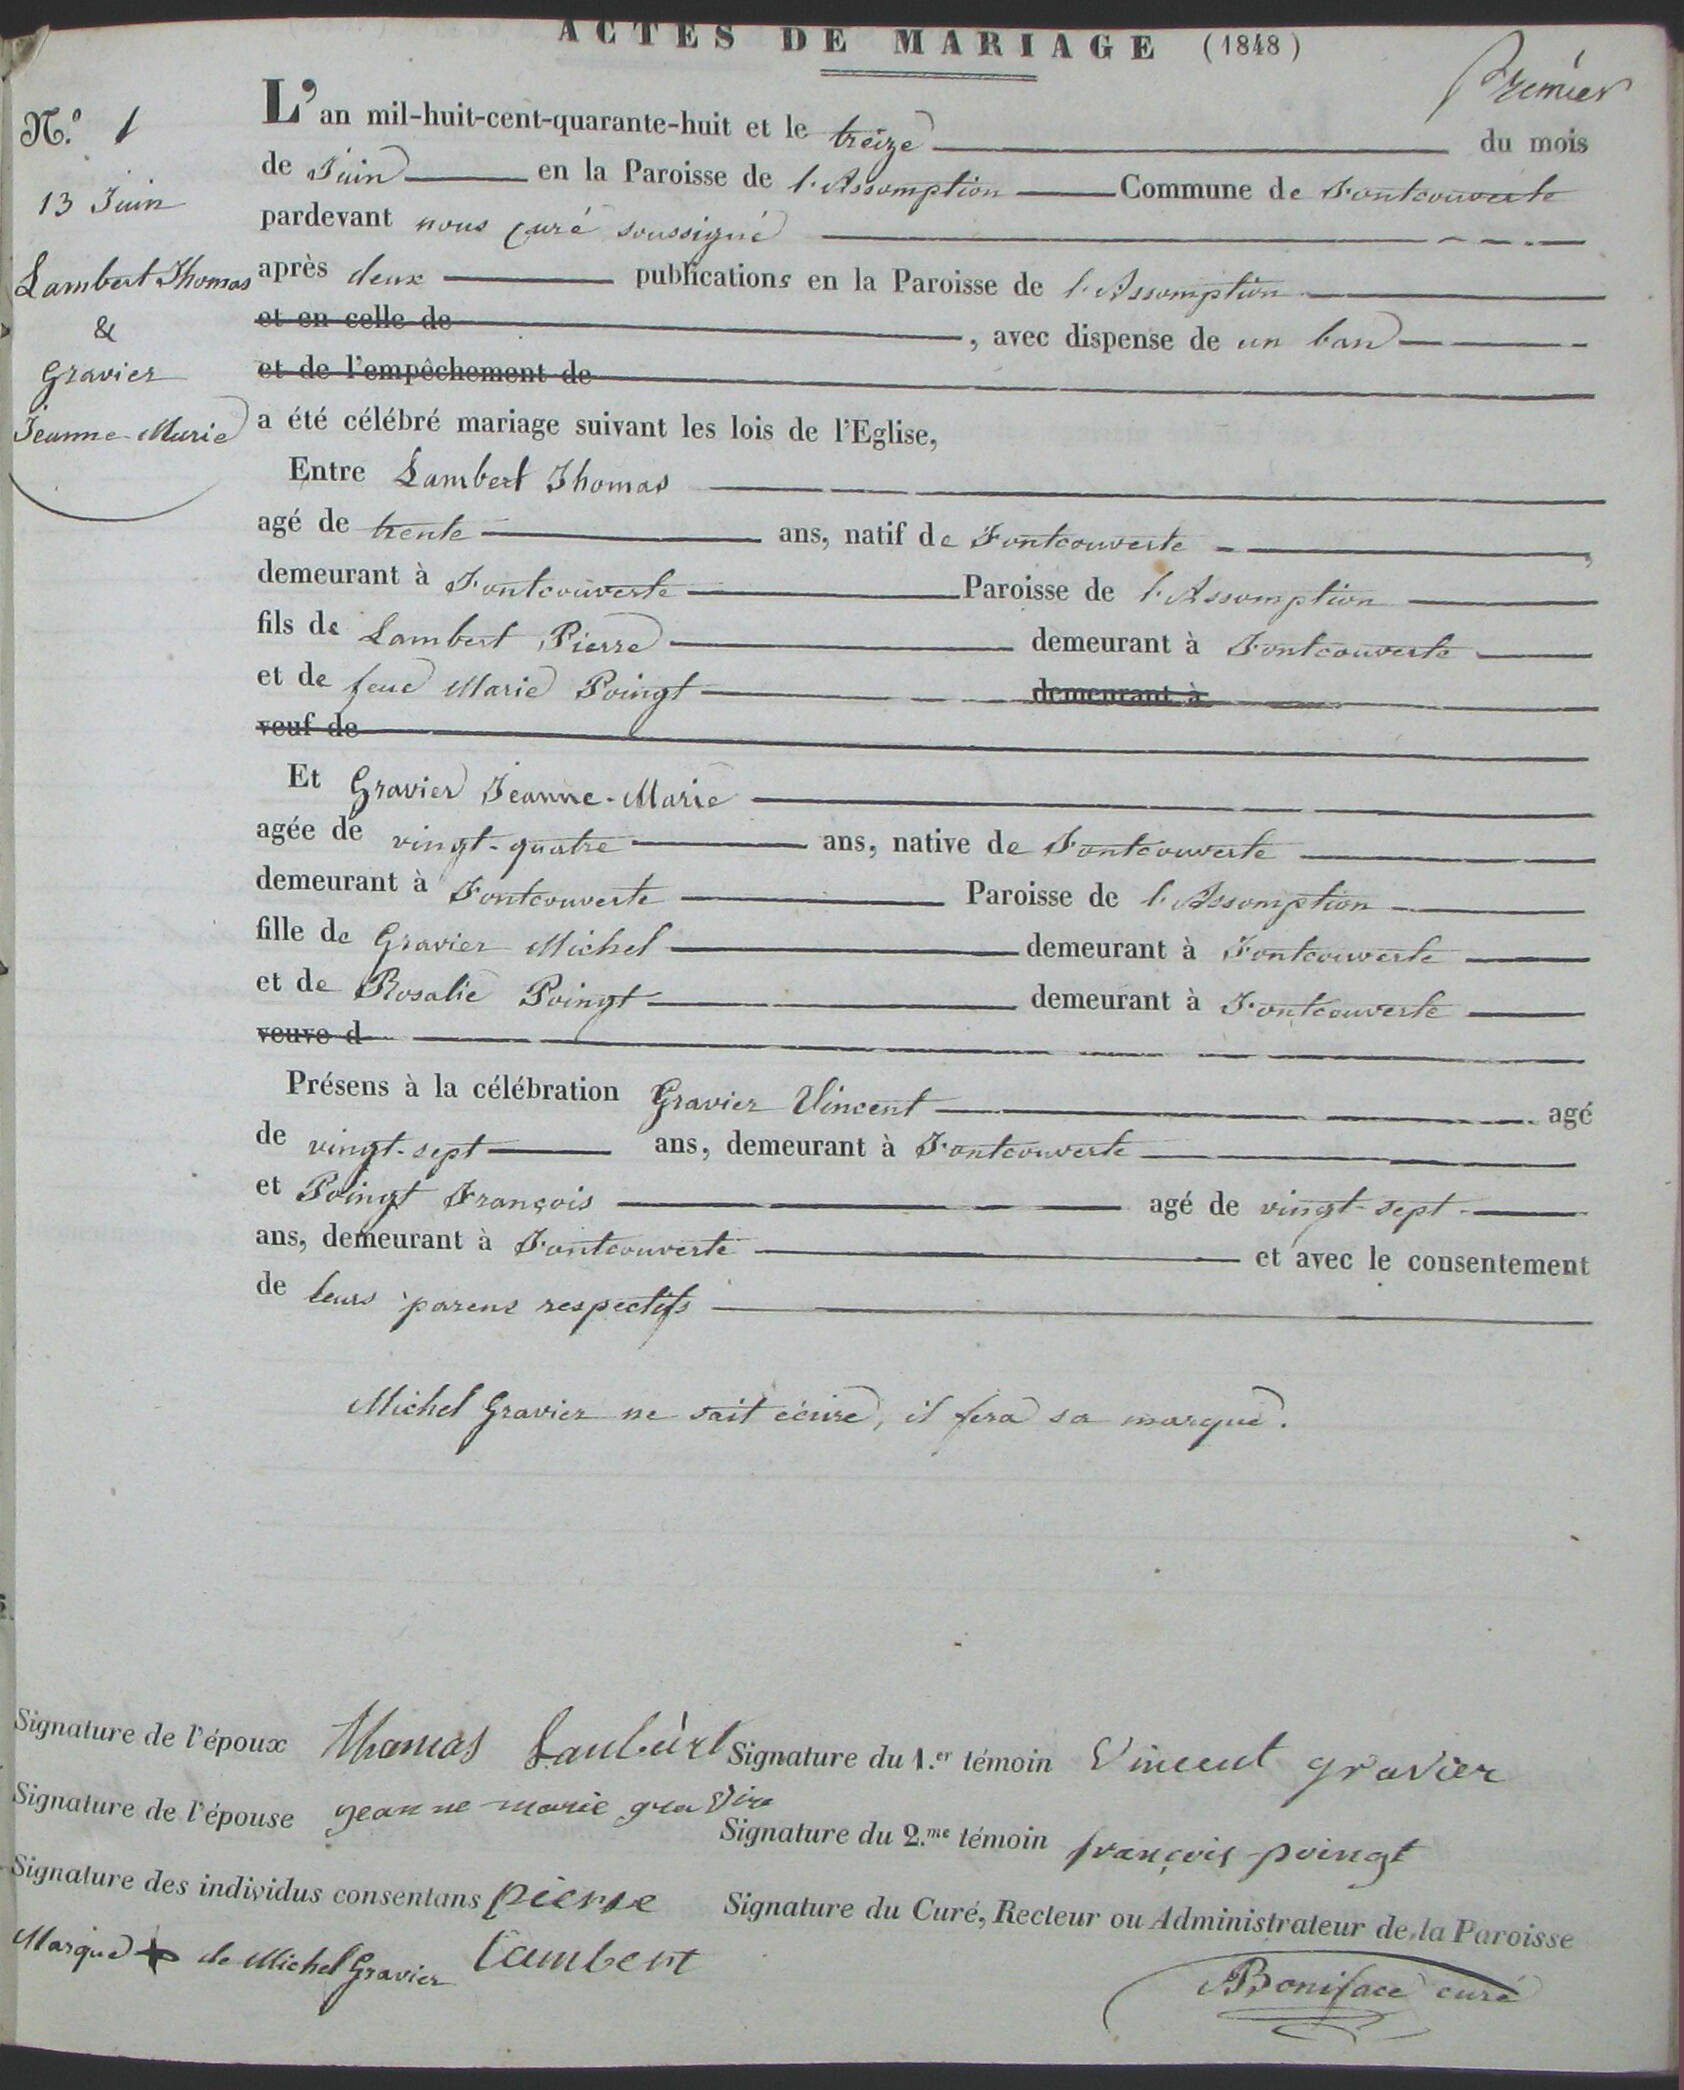 ACTES DE MARIAGE (1848)
Premier
N.º 1
13 Juin
Lambert Thomas
&
Gravier
Jeanne-Marie
L'an mil-huit-cent-quarante-huit et le treize du mois
de Juin en la Paroisse de l'Assomption Commune de Fontcouverte
pardevant nous curé soussigné
après deux publications en la Paroisse de l'Assomption
et en celle de , avec dispense de un ban
et de l'empêchement de
a été célébré mariage suivant les lois de l'Eglise,
Entre Lambert Thomas
agé de trente ans, natif de Fontcouverte ,
demeurant à Fontcouverte Paroisse de l'Assomption
fils de Lambert Pierre demeurant à Fontcouverte
et de feue Marie Poingt demeurant à
veuf de
Et Gravier Jeanne-Marie
agée de vingt-quatre ans, native de Fontcouverte
demeurant à Fontcouverte Paroisse de l'Assomption
fille de Gravier Michel demeurant à Fontcouverte
et de Rosalie Poingt demeurant à Fontcouverte
veuve d
Présens à la célébration Gravier Vincent agé
de vingt-sept ans, demeurant à Fontcouverte
et Poingt François agé de vingt-sept
ans, demeurant à Fontcouverte et avec le consentement
de leurs parens respectifs
Michel Gravier ne sait écrire, il fera sa marque.
Signature de l'époux Thomas Lambert Signature du 1.er témoin Vincent gravier
Signature de l'épouse jeanne marie gravire
Signature du 2.me témoin françois poingt
Signature des individus consentans pierre
Signature du Curé, Recteur ou Administrateur de la Paroisse
Marque + de Michel Gravier Lambert
Boniface curé